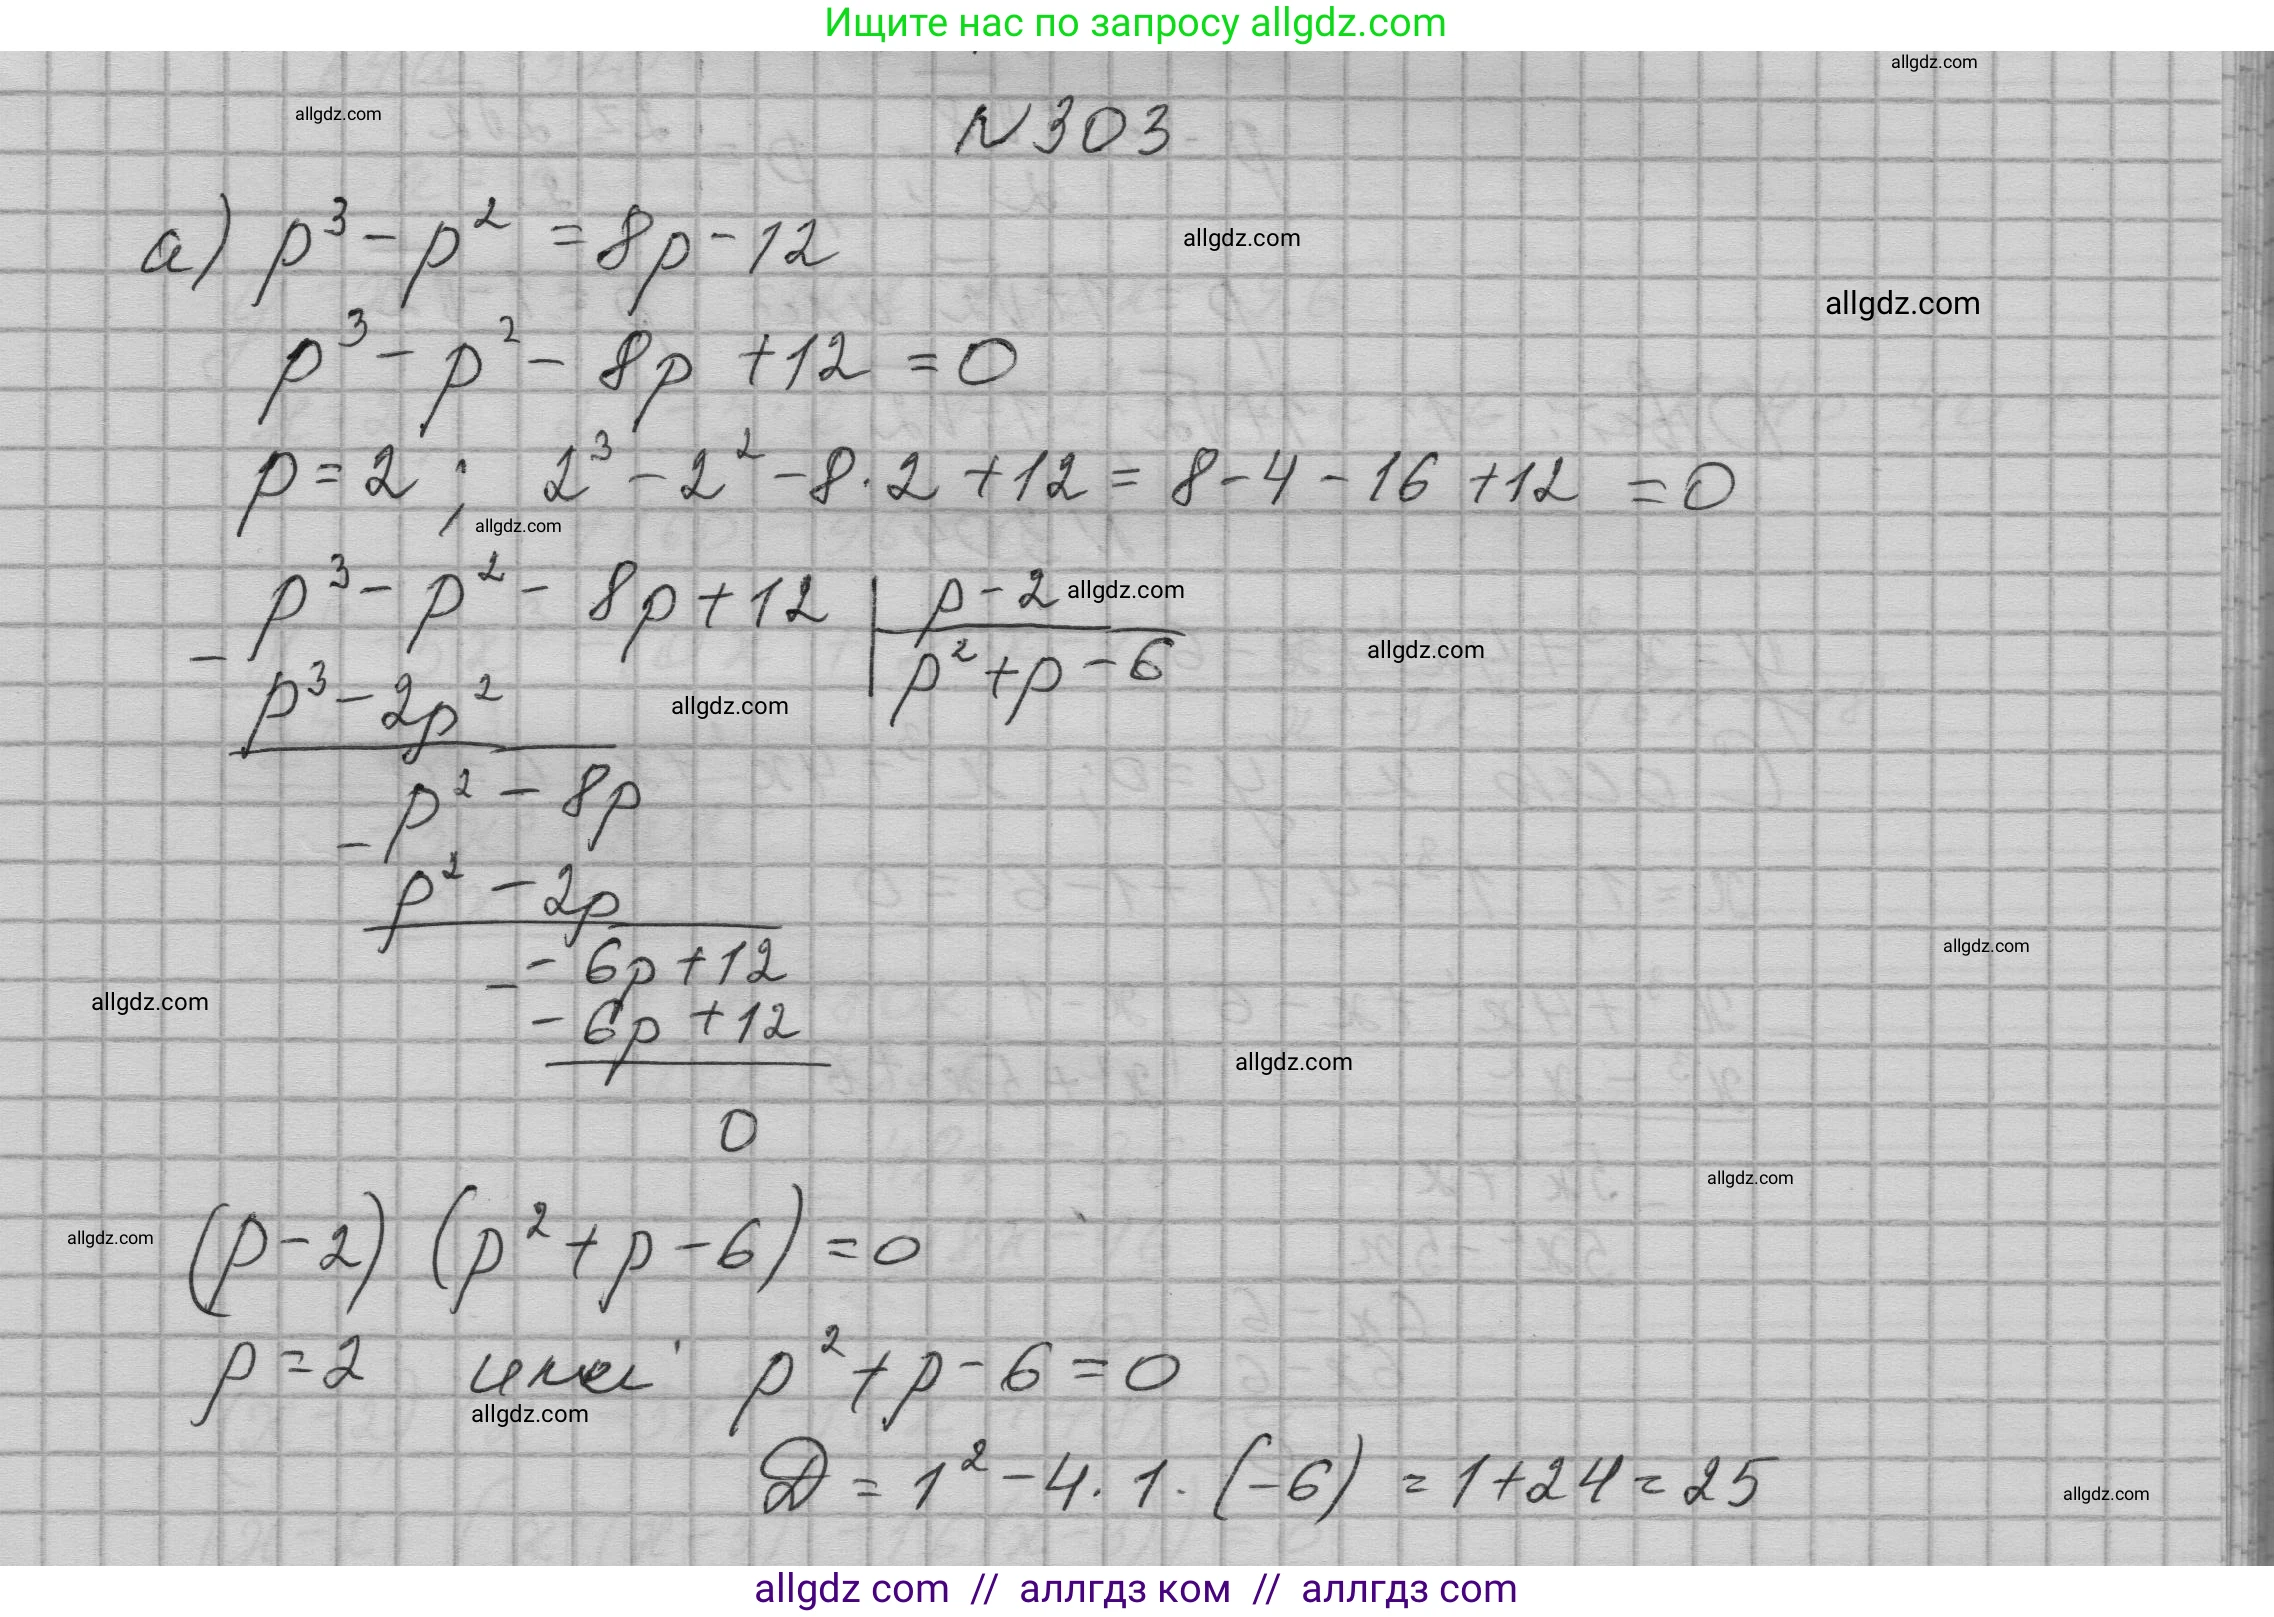 Ищите нас по запросу allgdz.com
allgdz.com
allgdz.com
N 303
а) p³ - p² = 8p - 12
allgdz.com
allgdz.com
p³ - p² - 8p + 12 = 0
p = 2 ; 2³ - 2² - 8 · 2 + 12 = 8 - 4 - 16 + 12 = 0
allgdz.com
p³ - p² - 8p + 12 | p - 2
allgdz.com
allgdz.com
- p³ - 2p² | p² + p - 6
allgdz.com
p² - 8p
- p² - 2p
- 6p + 12
allgdz.com
- - 6p + 12
allgdz.com
allgdz.com
0
allgdz.com
(p - 2) (p² + p - 6) = 0
allgdz.com
p = 2 или p² + p - 6 = 0
allgdz.com
D = 1² - 4 · 1 · (-6) = 1 + 24 = 25
allgdz.com
allgdz com // аллгдз ком // аллгдз com